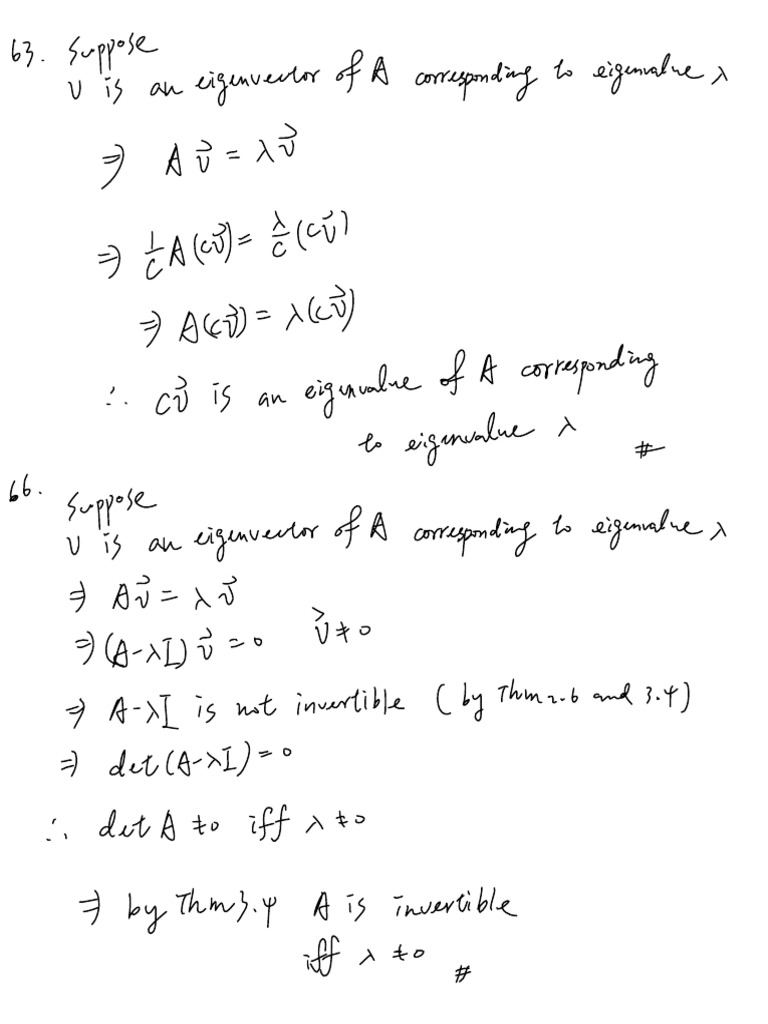 63. Suppose
v is an eigenvector of A corresponding to eigenvalue λ
⇒ Av⃗ = λv⃗
⇒ 1/c A(cv⃗) = λ/c (cv⃗)
⇒ A(cv⃗) = λ(cv⃗)
∴ cv⃗ is an eigenvalue of A corresponding
to eigenvalue λ #
66. Suppose
v is an eigenvector of A corresponding to eigenvalue λ
⇒ Av⃗ = λv⃗
⇒ (A-λI)v⃗ = 0 v⃗ ≠ 0
⇒ A-λI is not invertible (by Thm 2.6 and 3.4)
⇒ det(A-λI) = 0
∴ det A ≠ 0 iff λ ≠ 0
⇒ by Thm 3.4 A is invertible
iff λ ≠ 0 #